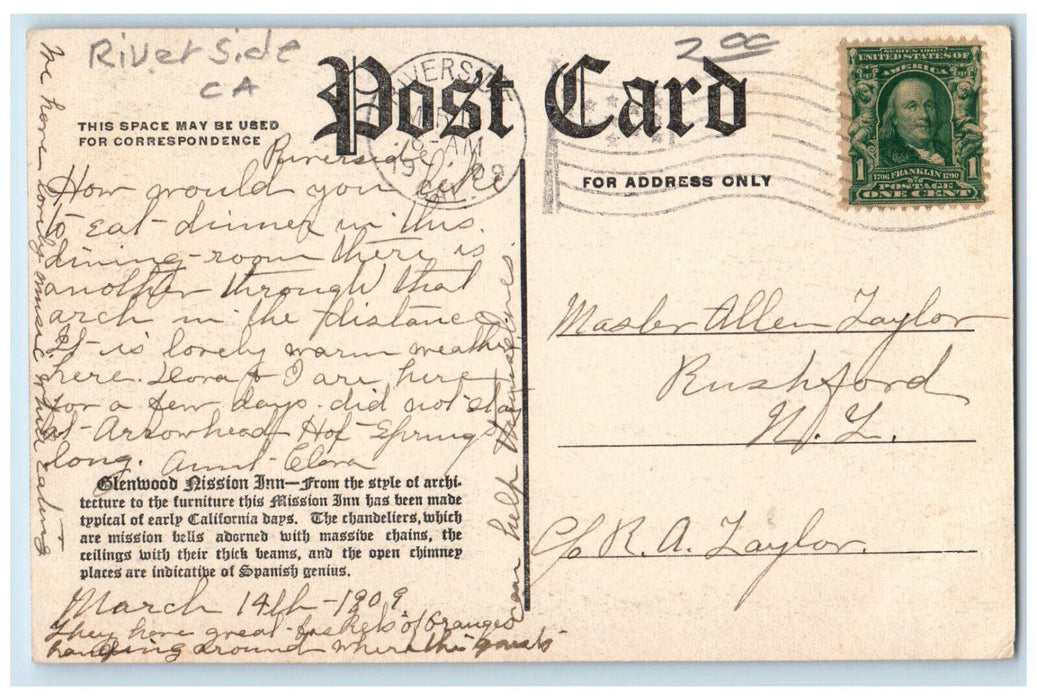 Riverside
CA
2 00
Post Card
THIS SPACE MAY BE USED
FOR CORRESPONDENCE
FOR ADDRESS ONLY
RIVERSIDE
8-AM
1909
CAL.
SERIES 1902
UNITED STATES OF
AMERICA
1 1706 FRANKLIN 1790 1
POSTAGE
ONE CENT
Riverside
How would you like
to eat dinner in this
dining-room there is
another through that
arch in the distance
It is lovely warm weather
here. Dora & I are here
for a few days. did not stay
at Arrowhead Hot Springs
long. Aunt Elora
Glenwood Mission Inn—From the style of archi-
tecture to the furniture this Mission Inn has been made
typical of early California days. The chandeliers, which
are mission bells adorned with massive chains, the
ceilings with their thick beams, and the open chimney
places are indicative of Spanish genius.
March 14th-1909
They have great baskets of Oranges
hanging around where the guests
can help themselves.
We have lovely music while eating
Master Allen Taylor
Rushford
N.Y.
c/o R. A. Taylor.